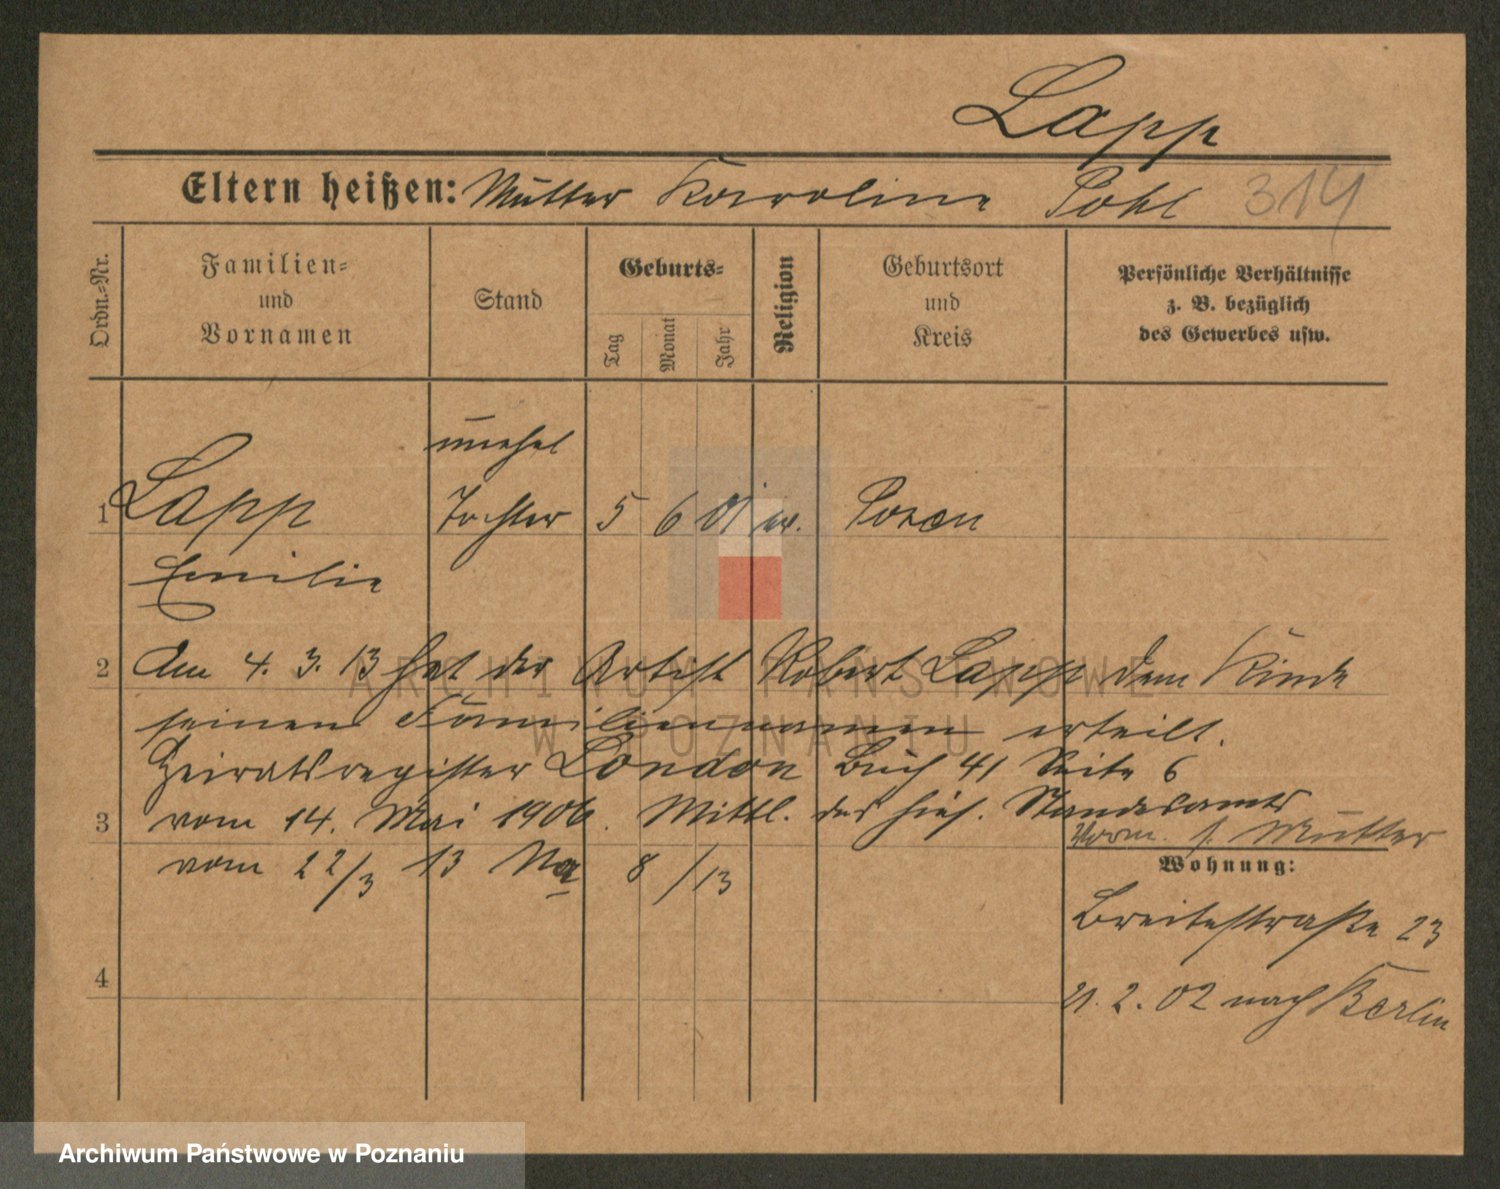 Lapp
Eltern heißen: Mutter Karoline Pohl 314
Ordn.-Nr.
Familien-
und
Vornamen
Stand
Geburts-
Tag
Monat
Jahr
Religion
Geburtsort
und
Kreis
Persönliche Verhältnisse
z. B. bezüglich
des Gewerbes usw.
unehel
1 Lapp Tochter 5 6 01 ev. Posen
Emilie
2 Am 4. 3. 13 hat der Artist Robert Lapp dem Kinde
seinen Familiennamen erteilt.
Heiratsregister London Buch 41 Seite 6
3 vom 14. Mai 1906. Mittl. des hies. Standesamts
vom 22/3 13 Na 8/13
Vorm. s. Mutter
Wohnung:
Breitestraße 23
4
21. 2. 02 nach Berlin
ARCHIWUM PAŃSTWOWE
W POZNANIU
Archiwum Państwowe w Poznaniu